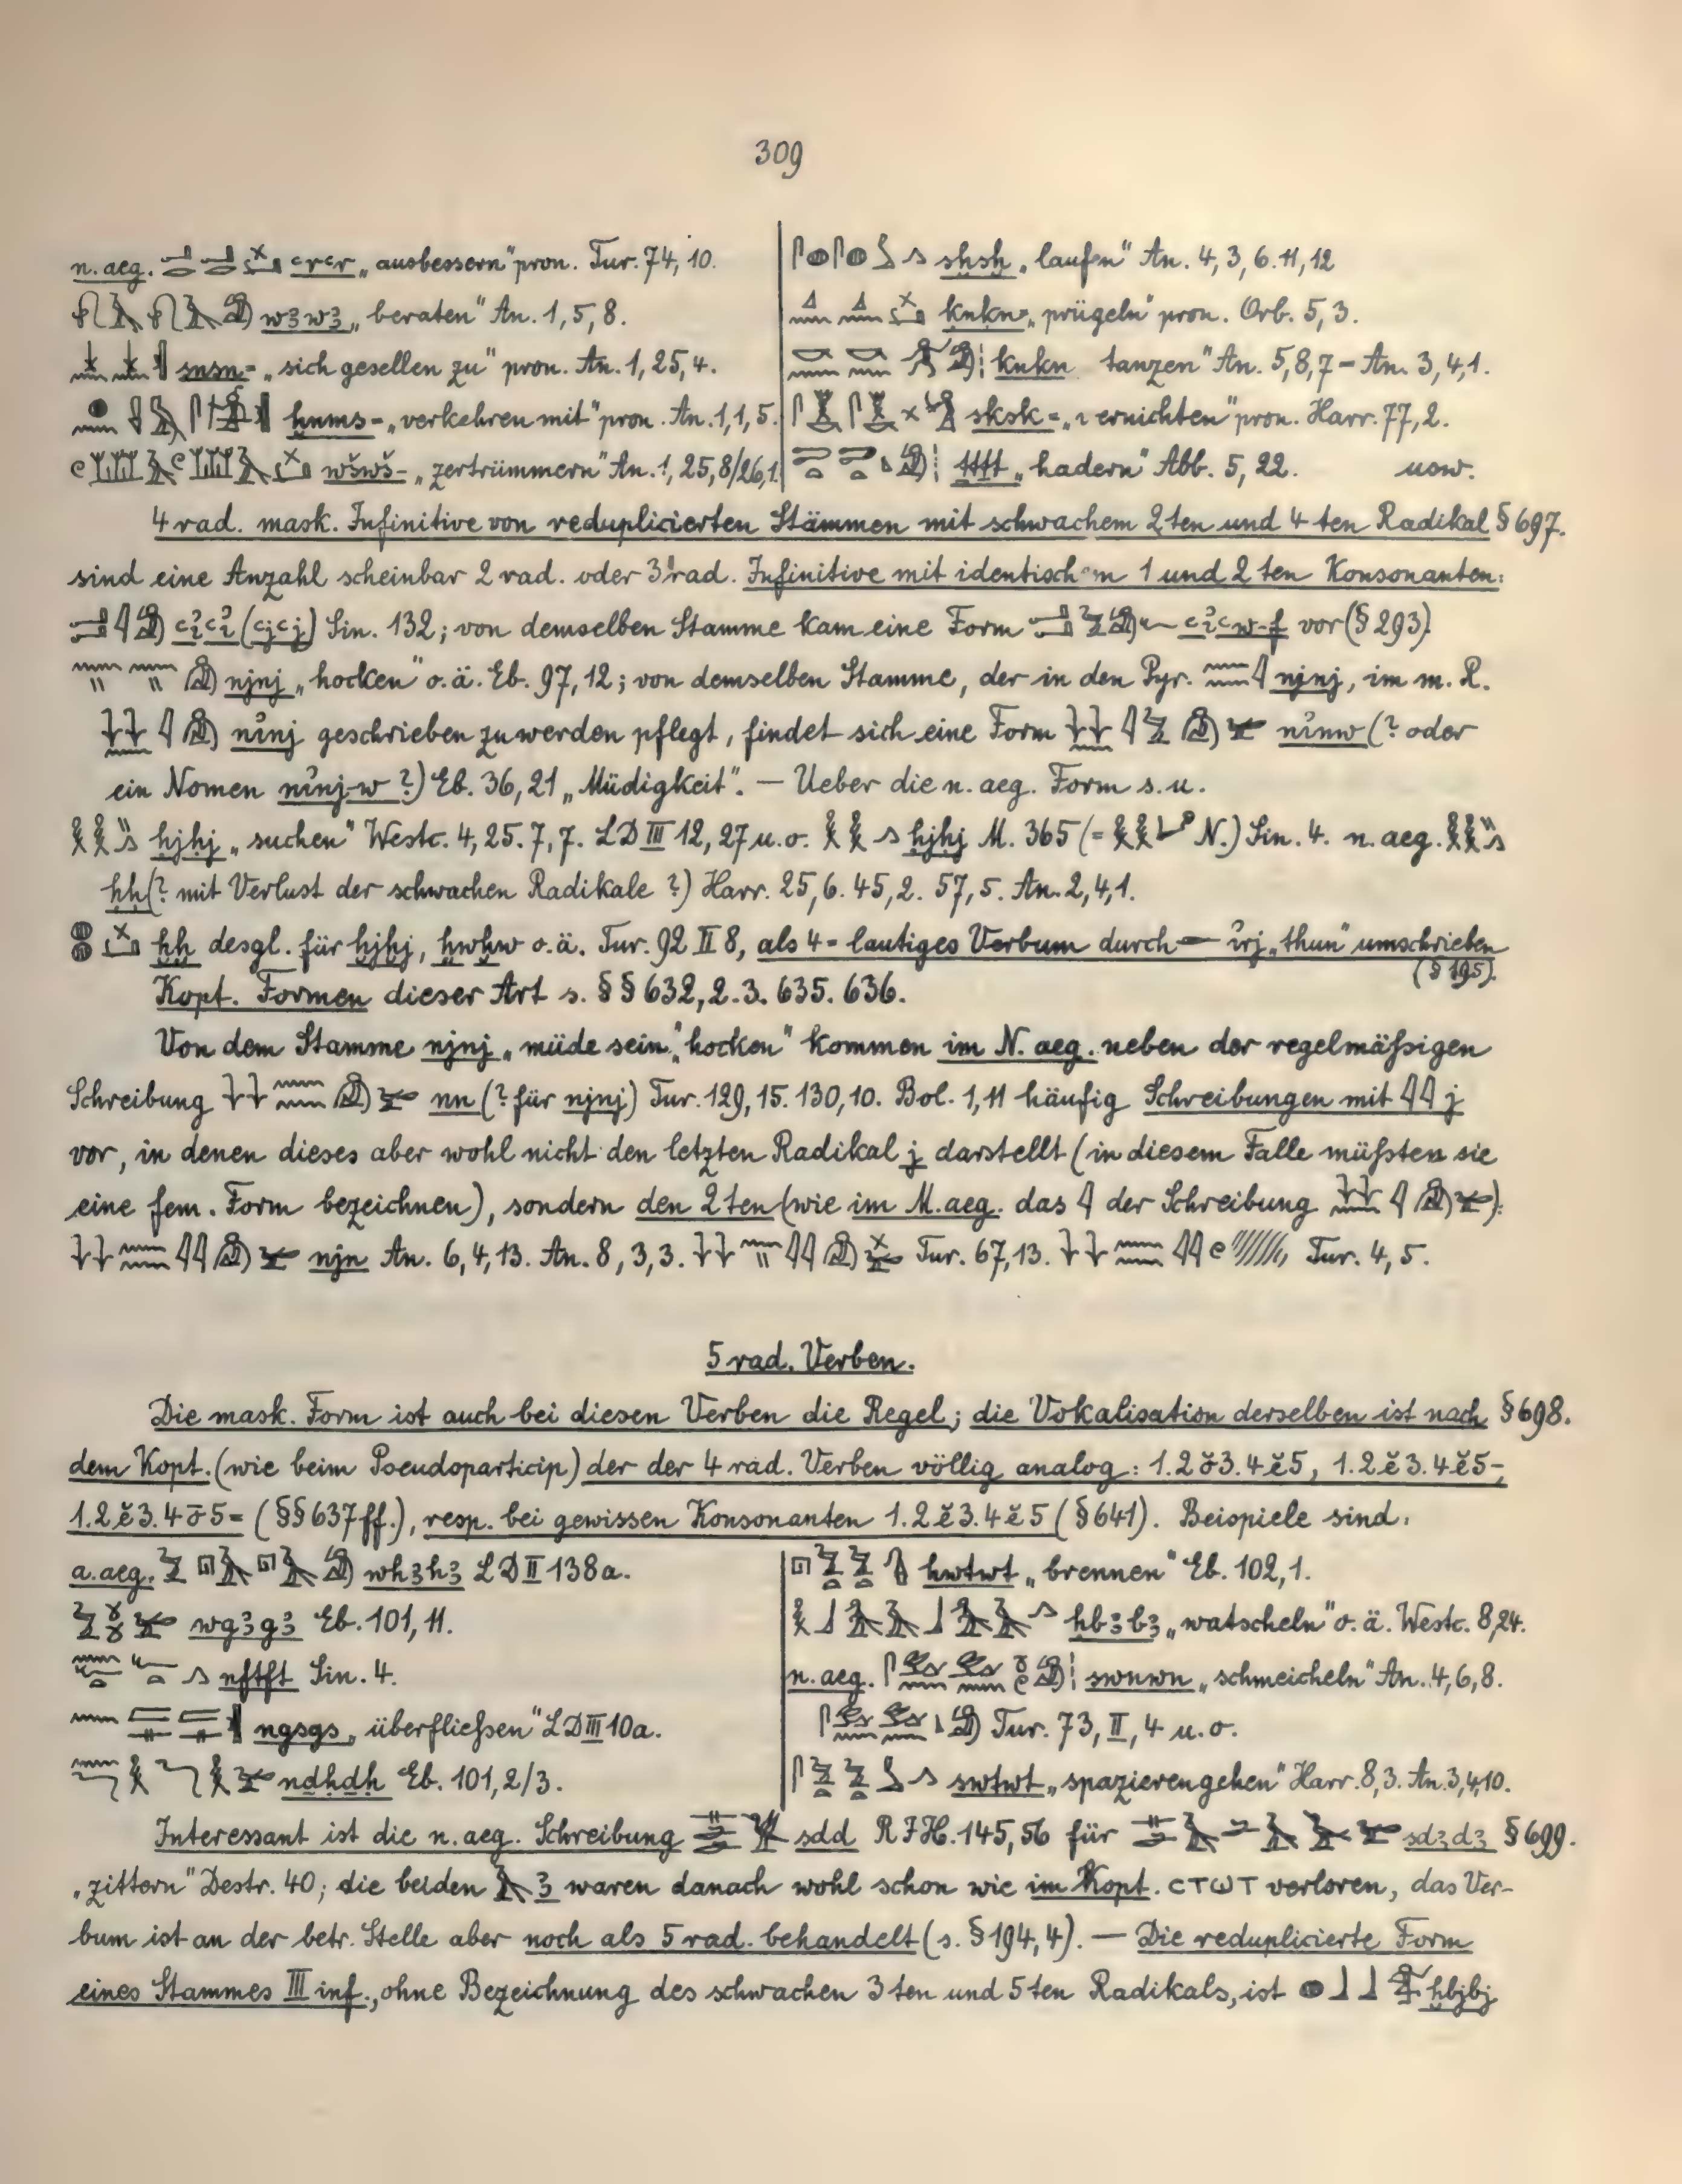 309
n. aeg. ꜥrꜥr „ausbessern" pron. Tur. 74, 10.
wꜣwꜣ „beraten" An. 1, 5, 8.
snsn= „sich gesellen zu" pron. An. 1, 25, 4.
ḫnms= „verkehren mit" pron. An. 1, 1, 5.
wšwš- „zertrümmern" An. 1, 25, 8/26, 1.
sḫsḫ „laufen" An. 4, 3, 6. 11, 12
ḳnḳn= „prügeln" pron. Orb. 5, 3.
knkn tanzen" An. 5, 8, 7 = An. 3, 4, 1.
sksk= „vernichten" pron. Harr. 77, 2.
ṯṯṯṯ „hadern" Abb. 5, 22. usw.
4 rad. mask. Infinitive von reduplicierten Stämmen mit schwachem 2ten und 4ten Radikal § 697.
sind eine Anzahl scheinbar 2 rad. oder 3 rad. Infinitive mit identischem 1 und 2ten Konsonanten:
ꜥı͗ꜥı͗ (ꜥjꜥj) Sin. 132; von demselben Stamme kam eine Form ꜥı͗ꜥw-f vor (§ 293).
njnj „hocken" o. ä. Eb. 97, 12; von demselben Stamme, der in den Pyr. njnj, im m. R.
nı͗nj geschrieben zu werden pflegt, findet sich eine Form nı͗nw (? oder
ein Nomen nı͗nj-w ?) Eb. 36, 21 „Müdigkeit". — Ueber die n. aeg. Form s. u.
ḥjḥj „suchen" Westc. 4, 25. 7, 7. LD III 12, 27 u. o. ḥjḥj M. 365 (= N.) Sin. 4. n. aeg.
ḥḥ (? mit Verlust der schwachen Radikale ?) Harr. 25, 6. 45, 2. 57, 5. An. 2, 4, 1.
ḫḫ desgl. für ḫjḫj, ḫwḫw o. ä. Tur. 92 II 8, als 4-lautiges Verbum durch ı͗rj „thun" umschrieben
(§ 195).
Kopt. Formen dieser Art s. §§ 632, 2. 3. 635. 636.
Von dem Stamme njnj „müde sein", "hocken" kommen im N. aeg. neben der regelmäßigen
Schreibung nn (? für njnj) Tur. 129, 15. 130, 10. Bol. 1, 11 häufig Schreibungen mit j
vor, in denen dieses aber wohl nicht den letzten Radikal j darstellt (in diesem Falle müßten sie
eine fem. Form bezeichnen), sondern den 2ten (wie im M. aeg. das der Schreibung ):
njn An. 6, 4, 13. An. 8, 3, 3. Tur. 67, 13. Tur. 4, 5.
5 rad. Verben.
Die mask. Form ist auch bei diesen Verben die Regel; die Vokalisation derselben ist nach § 698.
dem Kopt. (wie beim Pseudoparticip) der der 4 rad. Verben völlig analog: 1.2ŏ3.4ĕ5, 1.2ĕ3.4ĕ5-,
1.2ĕ3.4ō5= (§§ 637 ff.), resp. bei gewissen Konsonanten 1.2ĕ3.4ĕ5 (§ 641). Beispiele sind:
a. aeg. whꜣhꜣ LD II 138a.
wgꜣgꜣ Eb. 101, 11.
nftft Sin. 4.
ngsgs „überfließen" LD III 10a.
ndḥdḥ Eb. 101, 2/3.
hwtwt „brennen" Eb. 102, 1.
ḥbꜣbꜣ „watscheln" o. ä. Westc. 8, 24.
n. aeg. swnwn „schmeicheln" An. 4, 6, 8.
Tur. 73, II, 4 u. o.
swtwt „spazieren gehen" Harr. 8, 3. An. 3, 4, 10.
Interessant ist die n. aeg. Schreibung sdd R I H. 145, 56 für sdꜣdꜣ § 699.
„zittern" Destr. 40; die beiden ꜣ waren danach wohl schon wie im Kopt. ⲥⲧⲱⲧ verloren, das Ver-
bum ist an der betr. Stelle aber noch als 5 rad. behandelt (s. § 194, 4). — Die reduplicierte Form
eines Stammes III inf., ohne Bezeichnung des schwachen 3ten und 5ten Radikals, ist ḫbjbj